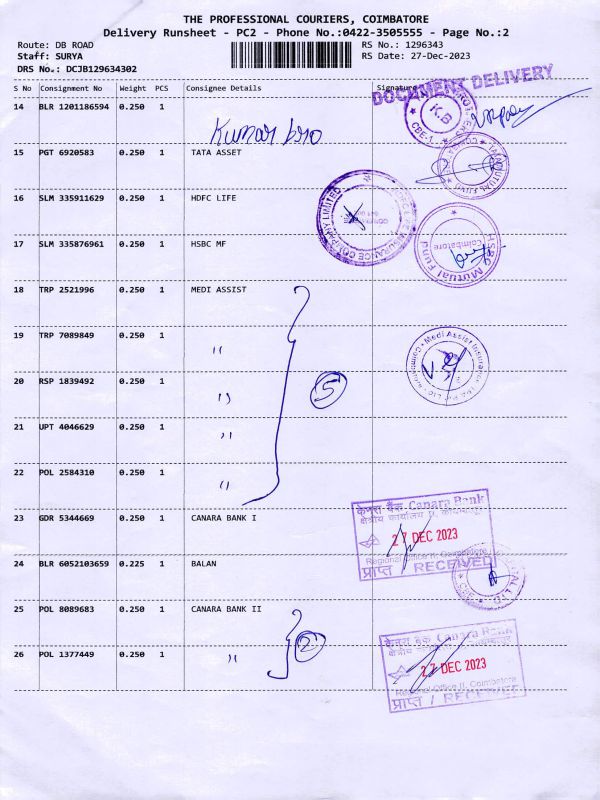 THE PROFESSIONAL COURIERS, COIMBATORE
Delivery Runsheet - PC2 - Phone No.:0422-3505555 - Page No.:2
Route: DB ROAD RS No.: 1296343
Staff: SURYA RS Date: 27-Dec-2023
DRS No.: DCJB129634302
DOCUMENT DELIVERY
S No Consignment No Weight PCS Consignee Details Signature
14 BLR 1201186594 0.250 1
Kumar bro
K.B
CBE-1
15 PGT 6920583 0.250 1 TATA ASSET
16 SLM 335911629 0.250 1 HDFC LIFE
INSURANCE COMPANY LIMITED
17 SLM 335876961 0.250 1 HSBC MF
Mutual Fund
Coimbatore
18 TRP 2521996 0.250 1 MEDI ASSIST
19 TRP 7089849 0.250 1 "
Medi Assist Insurance
20 RSP 1839492 0.250 1 " 5
21 UPT 4046629 0.250 1 "
22 POL 2584310 0.250 1 "
23 GDR 5344669 0.250 1 CANARA BANK I
केनरा बैंक Canara Bank
क्षेत्रीय कार्यालय
27 DEC 2023
Regional Office II, Coimbatore
प्राप्त / RECEIVED
24 BLR 6052103659 0.225 1 BALAN
25 POL 8089683 0.250 1 CANARA BANK II
26 POL 1377449 0.250 1 " 2
केनरा बैंक Canara Bank
क्षेत्रीय कार्यालय
27 DEC 2023
Regional Office II, Coimbatore
प्राप्त / RECEIVED